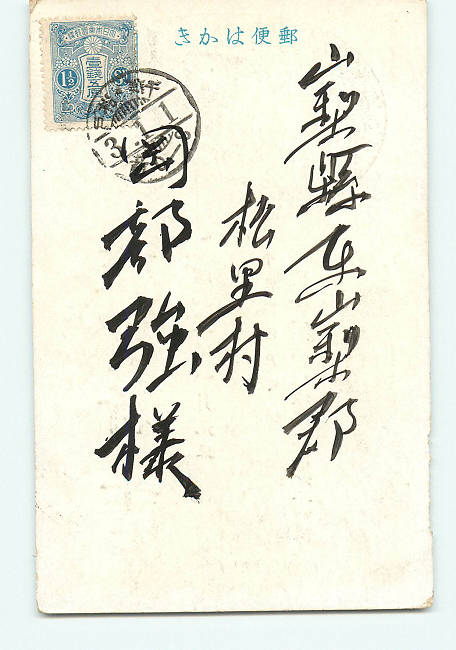 きかは便郵
山梨縣東山梨郡
松里村
岡部強様
大日本帝國郵便
壹錢五厘
1½